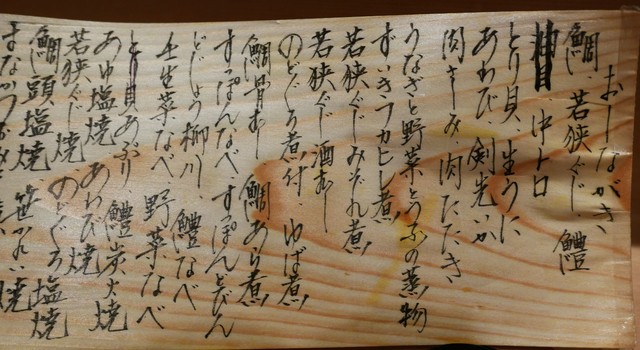 おしながき
鯛、若狭ぐじ、鱧
中トロ
とり貝、生うに
あわび、剣先いか
肉さしみ、肉たたき
うなぎと野菜とうふの蒸物
ずいきフカヒレ煮
若狭ぐじみぞれ煮
若狭ぐじ酒むし
のどぐろ煮付、ゆば煮
鯛骨むし 鯛あら煮
すっぽんなべ、すっぽんどびん
どじょう柳川、鱧なべ
壬生菜なべ 野菜なべ
とり貝あぶり、鱧炭火焼
あゆ塩焼 あわび焼
若狭ぐじ焼 のどぐろ塩焼
鯛頭塩焼 笹かれい焼